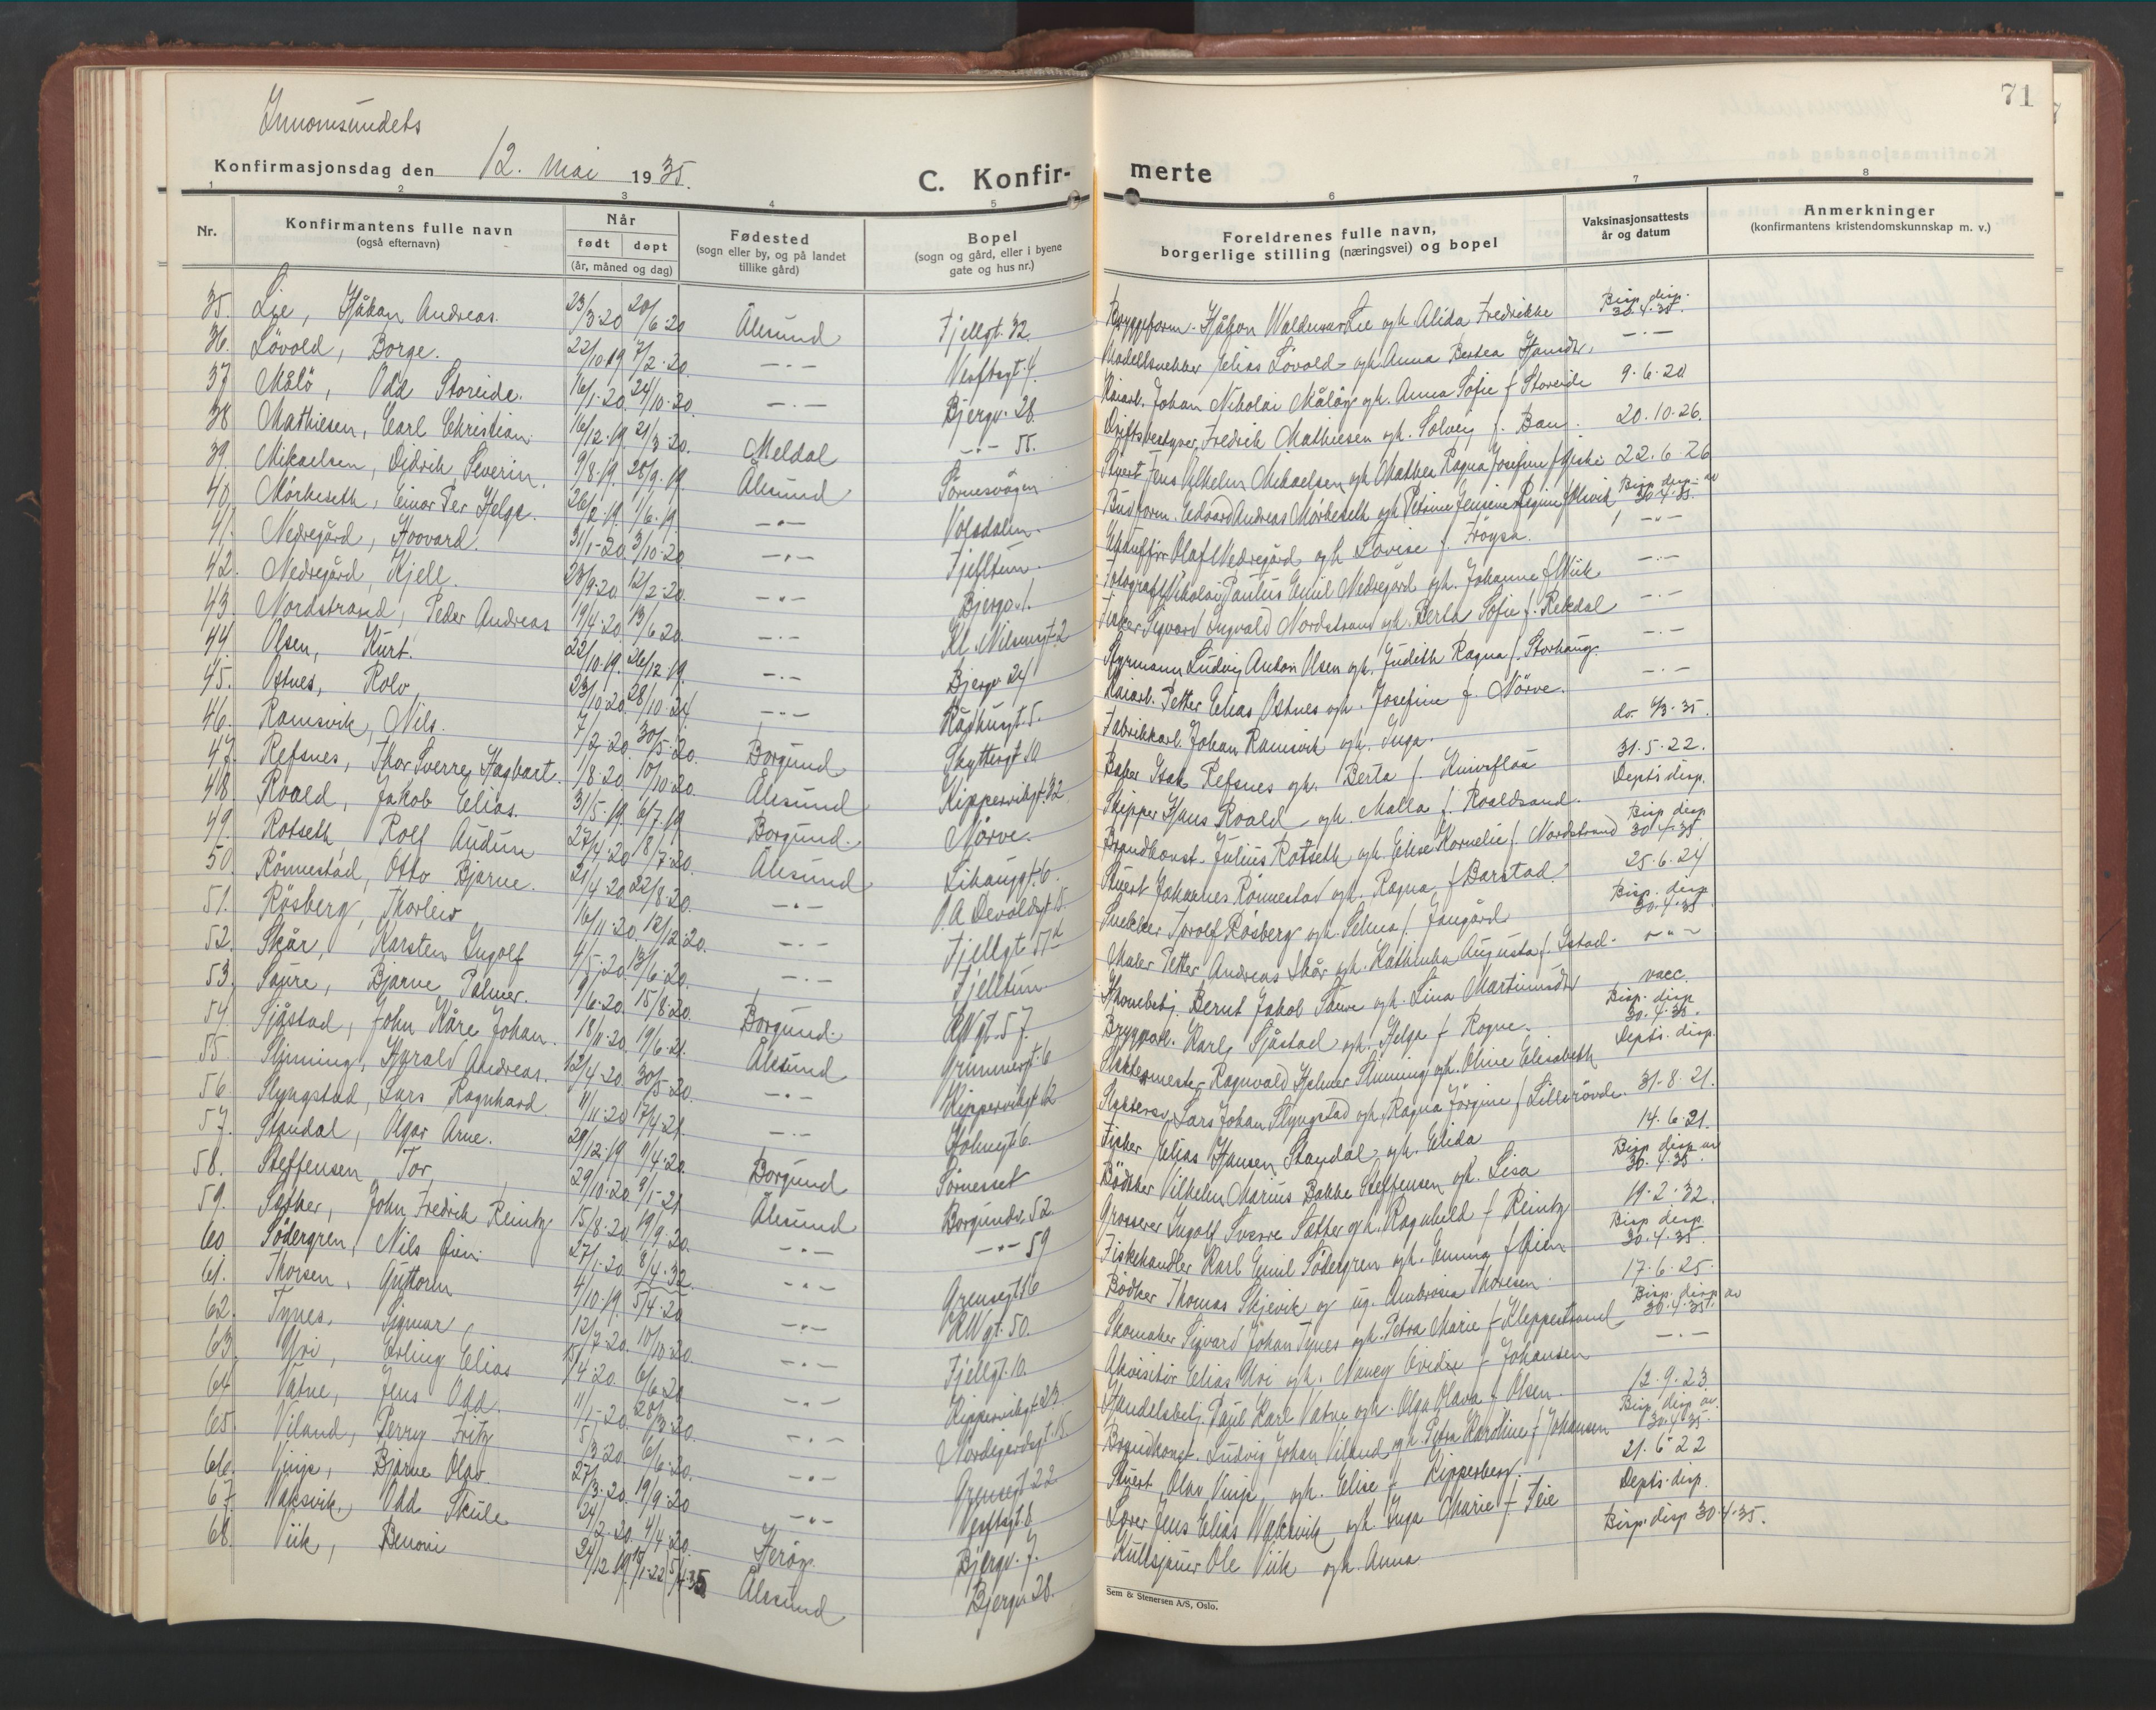 Innomsundets
Konfirmasjonsdag den 12. mai 1935.
C. Konfir-
merte
71
1 2 3 4 5 6 7 8
Nr.
Konfirmantens fulle navn
(også efternavn)
Når
født døpt
(år, måned og dag)
Fødested
(sogn eller by, og på landet
tillike gård)
Bopel
(sogn og gård, eller i byene
gate og hus nr.)
Foreldrenes fulle navn,
borgerlige stilling (næringsvei) og bopel
Vaksinasjonsattests
år og datum
Anmerkninger
(konfirmantens kristendomskunnskap m. v.)
35. Lie, Håkon Andreas. 23/3-20 20/6-20 Ålesund Fjellgt. 32. Bryggeform. Håkon Waldemar Lie og h. Alida Fredrikke Bisp. disp. 30.4.35.
36. Løvold, Borge. 22/10-19 7/2-20. -"- Verftsgt. 4. Modellsnekker Elias Løvold og h. Anna Bertea Hansdtr. -"-
37 Målö, Odd Storeide. 16/1-20. 24/10-20. -"- Bjergv. 28. Kaiarb. Johan Nikolai Målöy og h. Anna Sofie f. Storeide 9.6.20
38 Mathiesen, Carl Christian. 16/12-19. 21/3-20. Meldal -"- 55. Driftsbestyrer Fredrik Mathiesen og h. Solveig f. Bang. 20.10.26.
39. Mikaelsen, Didrik Severin. 9/8-19. 28/9-19. Ålesund Sørnesvågen Stuert Jens Vilhelm Mikaelsen og h. Mathea Ragna Josefine f. Giske 22.6.26
40. Mørkeseth, Einar Per Helge. 26/2-19. 1/6-19 -"- Volsdalen. Budform. Edvard Andreas Mørkeseth og h. Petrine Jensine Regine f. Olsvik Bisp. disp. av 30.4.35.
41. Nedregård, Hovard. 31/1-20. 3/10-20 -"- Fjelltun. Chauffør Olaf Nedregård og h. Lovise f. Frøysa. -"-
42. Nedregård, Kjell. 12/2-20. -"- Bjergv. 1. Fotograf Nikolai Paulus Emil Nedregård og h. Johanne f. Wiik -"-
43. Nordstrand, Peder Andreas 19/4-20. 13/6-20. -"- Kl. Nilsensgt. 2 Fisker Sigvard Ingvald Nordstrand og h. Berta Sofie f. Rekdal -"-
44. Olsen, Kurt. 22/10-19. 26/12-19. -"- Bjergv. 24 Styrmann Ludvig Anton Olsen og h. Judith Ragna f. Storhaug. -"-
45. Ostnes, Rolv, 23/10-20. 28/10-24 -"- Rådhusgt. 5. Kaiarb. Petter Elias Ostnes og h. Josefine f. Nørve. -"-
46. Ramsvik, Nils. 7/2-20. 30/5-20. Borgund Skyttergt. 10 Fabrikkarb. Johan Ramsvik og h. Inga. do. 6/3-35.
47. Refsnes, Thor Sverre Hagbart. 1/8-20. 10/10-20. Ålesund Kipperviksgt. 32. Baker Isak Refsnes og h. Berta f. Knivsflaa 31.5.22.
48. Roald, Jakob Elias. 31/5-19. 6/7-19 Borgund. Nørve. Skipper Hans Roald og h. Malla f. Roaldsand. Dept's disp.
49. Rotseth, Rolf Audun 27/4-20 18/7-20. Ålesund Lihauggt. 6. Brandkonst. Julius Rotseth og h. Elise Kornelie f. Nordstrand Bisp. disp. 30.4.35
50. Rönnestad, Otto Bjarne. 21/4-20 22/8-20. -"- O. A. Devoldsgt. 15. Stuert Johannes Rönnestad og h. Ragna f. Barstad. 25.6.24
51. Rösberg, Thorleiv 16/11-20. 12/12-20. -"- Fjellgt. 51 Snekker Torolf Rösberg og h. Selma f. Jangård Bisp. disp. 30.4.35
52. Skår, Karsten Ingolf 4/5-20 13/6-20. -"- Fjelltun. Maler Petter Andreas Skår og h. Kathinka Augusta f. Ystad. -"-
53. Saure, Bjarne Palmer. 9/6-20. 15/8-20. Borgund. RWgt. 57. Handelsbetj. Bernt Jakob Saure og h. Lina Martinusdtr vacc.
54. Sjåstad, John Kåre Johan. 18/11-20. 19/6-21. Ålesund Grimmergt. 6 Bryggearb. Karl Sjåstad og h. Helga f. Rogne. Bisp. disp. 30.4.35.
55. Slinning, Harald Andreas. 12/4-20. 30/5-20. -"- Kipperviksgt. 12 Slaktermester Ragnvald Hjelmer Slinning og h. Oline Elisabeth Dept's. disp.
56. Slyngstad, Lars Ragnhard. 11/11-20 17/4-21 -"- Holmegt. 6. Slaktersv. Lars Johan Slyngstad og h. Ragna Jörgine f. Lillerövde. 31-8.21.
57. Standal, Olgar Arne. 29/12-19 11/4-20. Borgund Sørneset Fisker Elias Hansen Standal og h. Elida 14.6.21.
58. Steffensen, Tor, 29/10-20 9/1-21 Ålesund Borgundv. 52. Bødker Vilhelm Marius Bakke Steffensen og h. Lisa Bisp. disp. av 30.4.35.
59. Sæther, John Fredrik Reintz 15/8-20. 19/9-20. -"- -"- 59 Grosserer Ingolf Sverre Sæther og h. Ragnhild f. Reintz 19.2.32.
60 Södergren, Nils Øien. 27/1-20 8/4-32. -"- Grensegt. 56 Fiskehandler Karl Emil Södergren og h. Emma f. Øien Bisp. disp. 30.4.35.
61. Thorsen, Guttorm 4/10-19. 5/4-20 -"- RWgt. 50. Bødker Thomas Skjevik og ug. Ambrosia Thoresen. 17.6.25.
62. Tynes, Sigmar, 12/7-20. 10/10-20. -"- Fjellgt. 10. Skomaker Sigvard Johan Tynes og h. Petra Marie f. Kleppestrand Bisp. disp. av 30.4.35.
63. Uri, Erling Elias 15/4-20. 6/6-20 -"- Kipperviksgt. 23 Akvisitør Elias Uri og h. Nancy Ovidie f. Johansen -"-
64 Vatne, Jens Odd. 11/1-20. 28/3-20. -"- Nordregårdsgt. 15. Handelsbetj. Paul Karl Vatne og h. Olga Olava f. Olsen. 12.9.23.
65. Viland, Perry Fritz 5/3-20 6/6-20. -"- Grensegt. 22 Brandkonst. Ludvig Johan Viland og h. Petra Karoline f. Johansen Bisp. disp. av. 30.4.35.
66. Vinje, Bjarne Olav. 27/3-20. 19/9-20 -"- Verftsgt. 6 Stuert Olav Vinje og h. Elise f. Kipperberg. 21.6.22
67. Waksvik, Odd Skule 24/2-20. 4/4-20. Herøy. Bjergv. 7. Lærer Jens Elias Waksvik og h. Inga Marie f. Teie Dept's. disp.
68. Viik, Benoni 24/12-19. Ålesund Bjergv. 28. Kullsjauer Ole Viik og h. Anna Bisp. disp 30.4.35.
Sem & Stenersen A/S, Oslo.